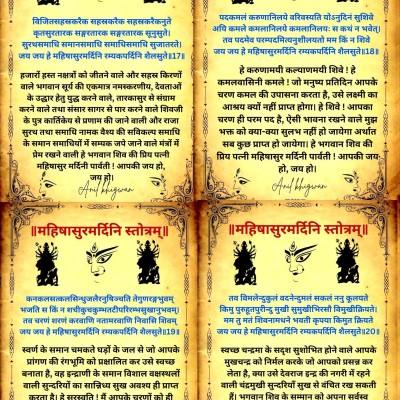 विजितसहस्रकरैक सहस्रकरैक सहस्रकरैकनुते
कृतसुरतारक सङ्गरतारक सङ्गरतारक सूनुसुते।
सुरथसमाधि समानसमाधि समाधिसमाधि सुजातरते।
जय जय हे महिषासुरमर्दिनि रम्यकपर्दिनि शैलसुते॥17॥
हजारों हस्त नक्षत्रों को जीतने वाले और सहस्र किरणों
वाले भगवान सूर्य की एकमात्र नमस्करणीय, देवताओं
के उद्धार हेतु युद्ध करने वाले, तारकासुर से संग्राम
करने वाले तथा संसार सागर से पार करने वाले शिवजी
के पुत्र कार्तिकेय से प्रणाम की जाने वाली और राजा
सुरथ तथा समाधि नामक वैश्य की सविकल्प समाधि
के समान समाधियों में सम्यक जपे जाने वाले मंत्रों में
प्रेम रखने वाली हे भगवान शिव की प्रिय पत्नी
महिषासुर मर्दिनी पार्वती ! आपकी जय हो,
जय हो।
Anil khigwan
पदकमलं करुणानिलये वरिवस्यति योऽनुदिनं सुशिवे
अयि कमले कमलानिलये कमलानिलयः स कथं न भवेत्।
तव पदमेव परम्पदमित्यनुशीलयतो मम किं न शिवे
जय जय हे महिषासुरमर्दिनि रम्यकपर्दिनि शैलसुते॥18॥
हे करुणामयी कल्याणमयी शिवे ! हे
कमलवासिनी कमले ! जो मनुष्य प्रतिदिन आपके
चरण कमल की उपासना करता है, उसे लक्ष्मी का
आश्रय क्यों नहीं प्राप्त होगा। हे शिवे ! आपका
चरण ही परम पद है, ऐसी भावना रखने वाले मुझ
भक्त को क्या-क्या सुलभ नहीं हो जायेगा अर्थात
सब कुछ प्राप्त हो जायेगा। हे भगवान शिव की
प्रिय पत्नी महिषासुर मर्दिनी पार्वती ! आपकी जय
हो, जय हो।
Anil khigwan
॥महिषासुरमर्दिनि स्तोत्रम्॥
कनकलसत्कलसिन्धुजलैरनुषिञ्चति तेगुणरङ्गभुवम्
भजति स किं न शचीकुचकुम्भतटीपरिरम्भसुखानुभवम्।
तव चरणं शरणं करवाणि नतामरवाणि निवासि शिवम्
जय जय हे महिषासुरमर्दिनि रम्यकपर्दिनि शैलसुते॥19॥
स्वर्ण के समान चमकते घड़ों के जल से जो आपके
प्रांगण की रंगभूमि को प्रक्षालित कर उसे स्वच्छ
बनाता है, वह इन्द्राणी के समान विशाल वक्षस्थलों
वाली सुन्दरियों का सान्निध्य सुख अवश्य ही प्राप्त
करता है। हे सरस्वति ! मैं आपके चरणों को ही
॥महिषासुरमर्दिनि स्तोत्रम्॥
तव विमलेन्दुकुलं वदनेन्दुमलं सकलं ननु कूलयते
किमु पुरुहूतपुरीन्दु मुखी सुमुखीभिरसौ विमुखीक्रियते।
मम तु मतं शिवनामधने भवती कृपया किमुत क्रियते
जय जय हे महिषासुरमर्दिनि रम्यकपर्दिनि शैलसुते॥20॥
स्वच्छ चन्द्रमा के सदृश सुशोभित होने वाले आपके
मुखचन्द्र को निर्मल करके जो आपको प्रसन्न कर
लेता है, क्या उसे देवराज इन्द्र की नगरी में रहने
वाली चंद्रमुखी सुन्दरियाँ सुख से वंचित रख सकती
हैं। भगवान शिव के सम्मान को अपना सर्वस्व